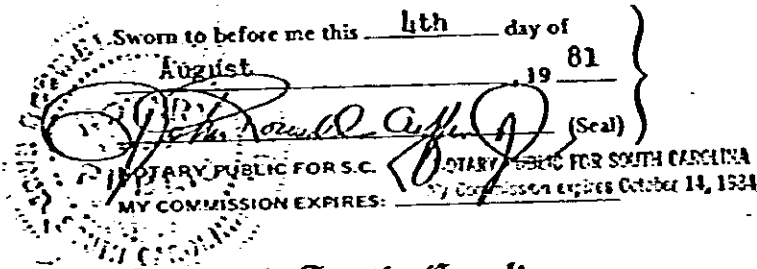 Sworn to before me this 4th day of
August, 19 81
John (Seal)
NOTARY PUBLIC FOR S.C. NOTARY PUBLIC FOR SOUTH CAROLINA
MY COMMISSION EXPIRES: My Commission expires October 14, 1984
NOTARY
PUBLIC